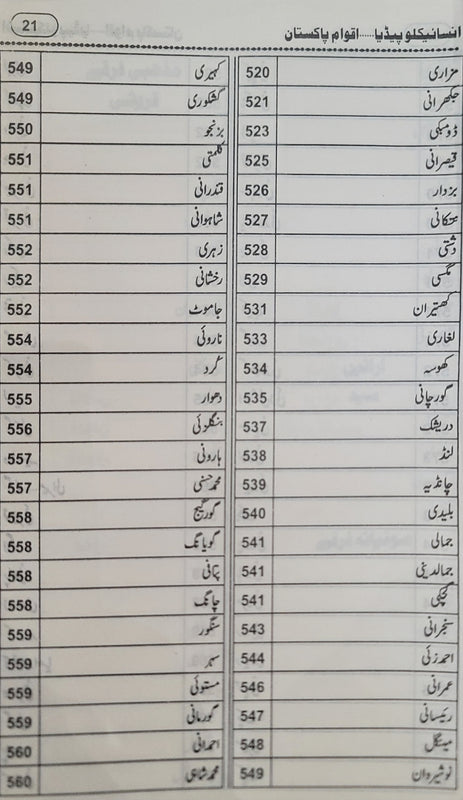 انسائیکلوپیڈیا.....اقوام پاکستان 21
مزاری 520
جکھرانی 521
ڈومبکی 523
قیصرانی 525
بزدار 526
527
دشتی 528
مگسی 529
کھتیران 531
لغاری 533
کھوسہ 534
گورچانی 535
دریشک 537
لنڈ 538
چانڈیہ 539
بلیدی 540
جمالی 541
جمالدینی 541
گچکی 541
سنجرانی 543
احمدزئی 544
عمرانی 546
رئیسانی 547
مینگل 548
نوشیروان 549
کہیری 549
گشکوری 549
بزنجو 550
کلمتی 551
قندرانی 551
شاہوانی 551
زہری 552
رخشانی 552
جاموٹ 552
ناروئی 554
کرد 554
دھوار 555
بنگلزئی 556
ہارونی 557
محمد حسنی 557
گورگیج 558
گوپانگ 558
پتافی 558
چانگ 558
سنگور 559
559
مستوئی 559
گورمانی 559
احمدانی 560
محمد شاہی 560